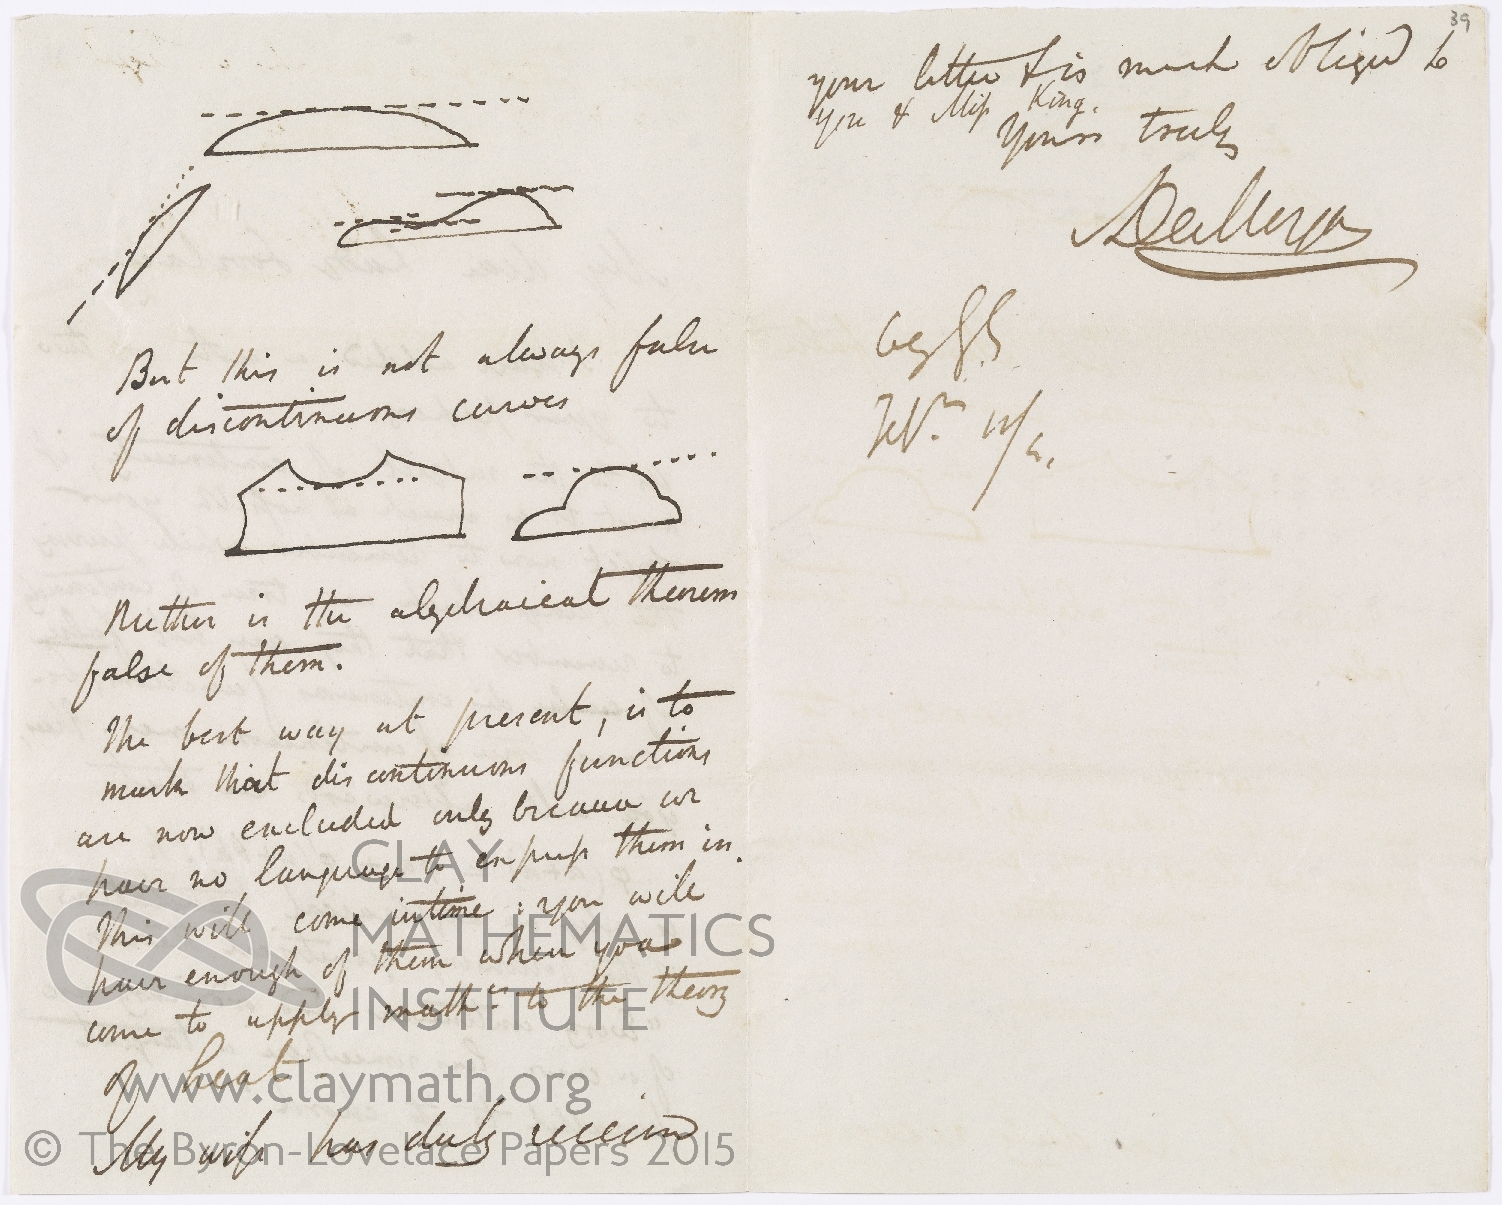 But this is not always false
of discontinuous curves
Neither is the algebraical theorem
false of them.
The best way at present, is to
mark that discontinuous functions
are now excluded only because we
have no language to express them in.
This will come in time: you will
have enough of them when you
come to apply math.cs to the theory
of heat —
My wife has duly received
39
your letter & is much obliged to
you & Miss King.
Yours truly
ADeMorgan
CLAY
MATHEMATICS
INSTITUTE
www.claymath.org
© The Byron-Lovelace Papers 2015